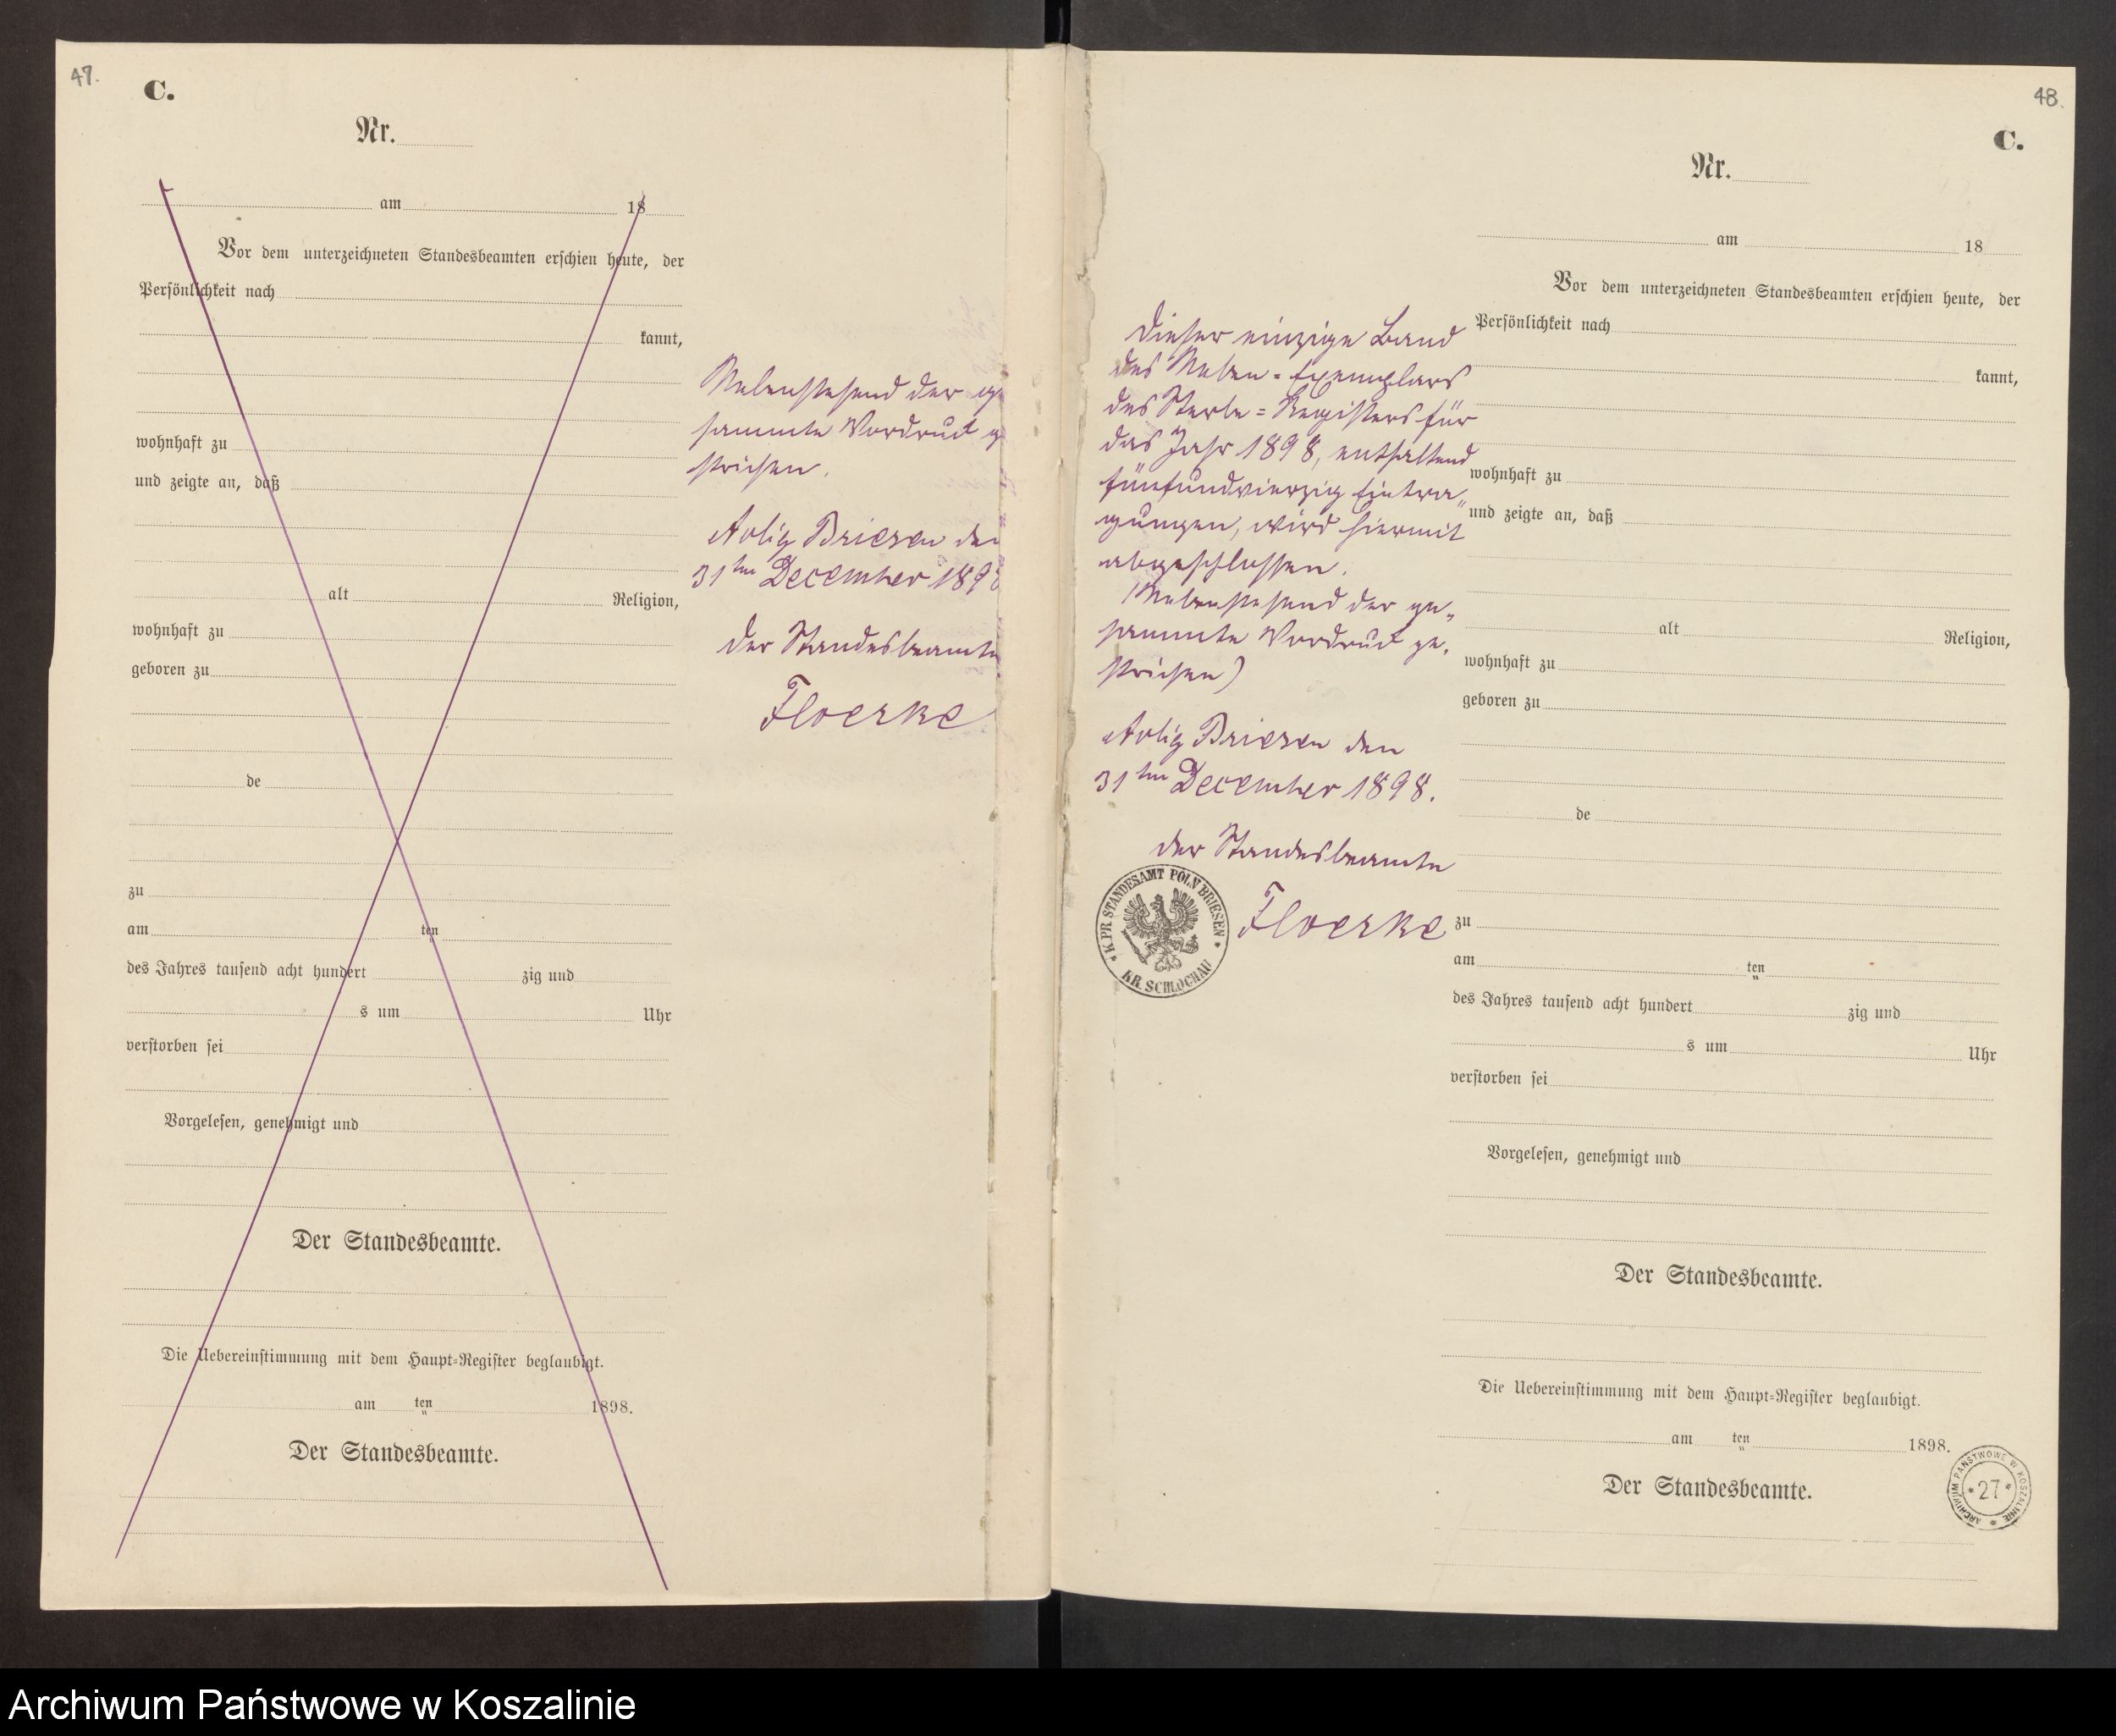 47.
C.
Nr.
am 18
Vor dem unterzeichneten Standesbeamten erschien heute, der
Persönlichkeit nach
kannt,
wohnhaft zu
und zeigte an, daß
alt Religion,
wohnhaft zu
geboren zu
de
zu
am ten
des Jahres tausend acht hundert zig und
s um Uhr
verstorben sei
Vorgelesen, genehmigt und
Der Standesbeamte.
Die Uebereinstimmung mit dem Haupt-Register beglaubigt.
am ten 1898.
Der Standesbeamte.
Nebenstehend der ge
sammte Vordruck g
strichen.
Adlig Briesen den
31ten December 1898
der Standesbeamte
Floerke
48.
C.
Dieser einzige Band
des Neben-Exemplars
des Sterbe-Registers für
das Jahr 1898, enthaltend
fünfundvierzig Eintra-
gungen, wird hiermit
abgeschlossen.
(Nebenstehend der ge-
sammte Vordruck ge-
strichen)
Adlig Briesen den
31ten December 1898.
der Standesbeamte
Floerke
K. PR. STANDESAMT POLN BRIESEN
KR. SCHLOCHAU
Nr.
am 18
Vor dem unterzeichneten Standesbeamten erschien heute, der
Persönlichkeit nach
kannt,
wohnhaft zu
und zeigte an, daß
alt Religion,
wohnhaft zu
geboren zu
de
zu
am ten
des Jahres tausend acht hundert zig und
s um Uhr
verstorben sei
Vorgelesen, genehmigt und
Der Standesbeamte.
Die Uebereinstimmung mit dem Haupt-Register beglaubigt.
am ten 1898.
Der Standesbeamte.
ARCHIWUM PAŃSTWOWE W KOSZALINIE
*27*
Archiwum Państwowe w Koszalinie